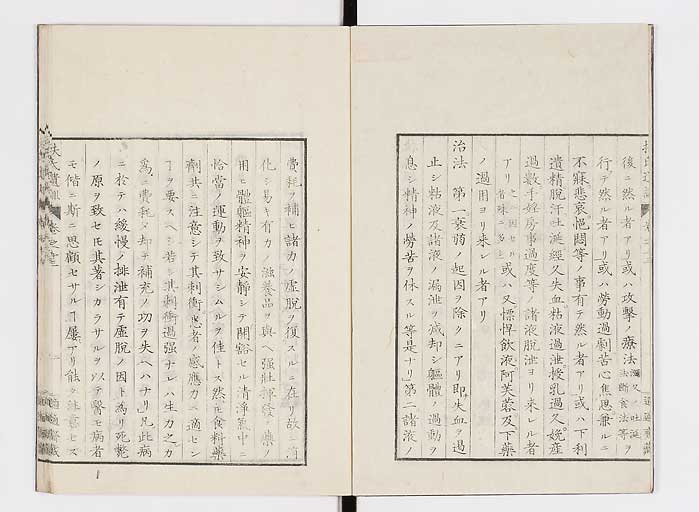 後ニ然ル者アリ或ハ攻擊ノ療法
瀉又ハ吐涎ヲ
法斷食法等
行テ然ル者アリ或ハ勞動過劇苦心焦思兼ルニ
不寐悲哀悒悶等ノ事有テ然ル者アリ或ハ下利
遺精脫汗吐涎經久失血粘液過泄授乳過久娩産
過數手婬房事過度等ノ諸液脫泄ヨリ来レル者
アリ
之ニ因セリ
或ハ又慓悍飲液阿芙蓉及下藥
ノ過用ヨリ来レル者アリ
治法 第一衰弱ノ起因ヲ除クニアリ即失血ヲ遏
止シ粘液及諸液ノ漏泄ヲ減却シ軀體ノ過動ヲ
息シ精神ノ勞苦ヲ休スル等是ナリ第二諸液ノ
扶氏遺訓
費耗ヲ補ヒ諸力ノ虛脫ヲ復スルニ在リ故ニ消
化シ易キ有力ノ滋養品ヲ與ヘ強壯揮發ノ藥ヲ
用ヒ體軀精神ヲ安靜シテ開豁セル清淨氣中ニ
恰當ノ運動ヲ致サシムルヲ佳トス然モ食料藥
劑共ニ注意シテ其刺衝患者ノ感應力ニ適セン
ヿヲ要スヘシ若シ其刺衝過强ナレハ生力之カ
爲ニ費耗シ却テ補充ノ功ヲ失ヘハナリ凡此病
ニ於テハ緩慢ノ排泄有テ虛脫ノ因ト爲リ死斃
ノ原ヲ致セモ其著シカラサルヲ以テ醫モ病者
モ偕ニ斯ニ思顧セサルヿ屢アリ能ク注意セス